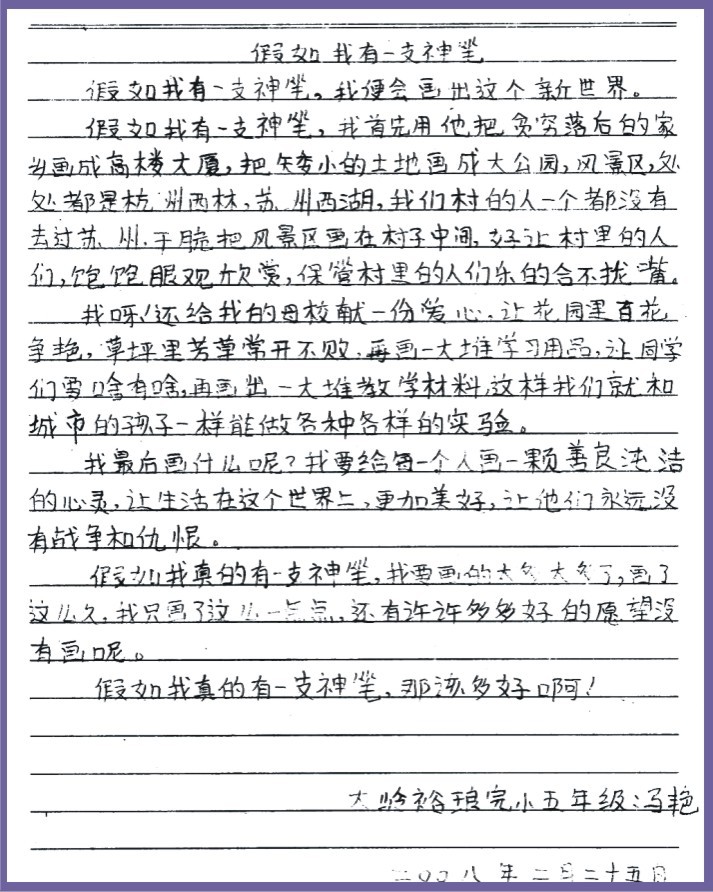 假如我有一支神笔
假如我有一支神笔，我便会画出这个新世界。
假如我有一支神笔，我首先用他把贫穷落后的家
乡画成高楼大厦，把矮小的土地画成大公园，风景区，处
处都是杭州西林，苏州西湖，我们村的人一个都没有
去过苏州.干脆把风景区画在村子中间，好让村里的人
们，饱饱眼观欣赏，保管村里的人们乐的合不拢嘴。
我呀！还给我的母校献一份爱心，让花园里百花
争艳，草坪里芳草常开不败，再画一大堆学习用品，让同学
们要啥有啥，再画出一大堆教学材料，这样我们就和
城市的孩子一样能做各种各样的实验。
我最后画什么呢？我要给每一个人画一颗善良纯洁
的心灵，让生活在这个世界上，更加美好，让他们永远没
有战争和仇恨。
假如我真的有一支神笔，我要画的太多太多了，画了
这么久，我只画了这么一点点，还有许许多多好的愿望没
有画呢。
假如我真的有一支神笔，那该多好啊！
大岭裕琅完小五年级：冯艳
二00八年二月二十五日